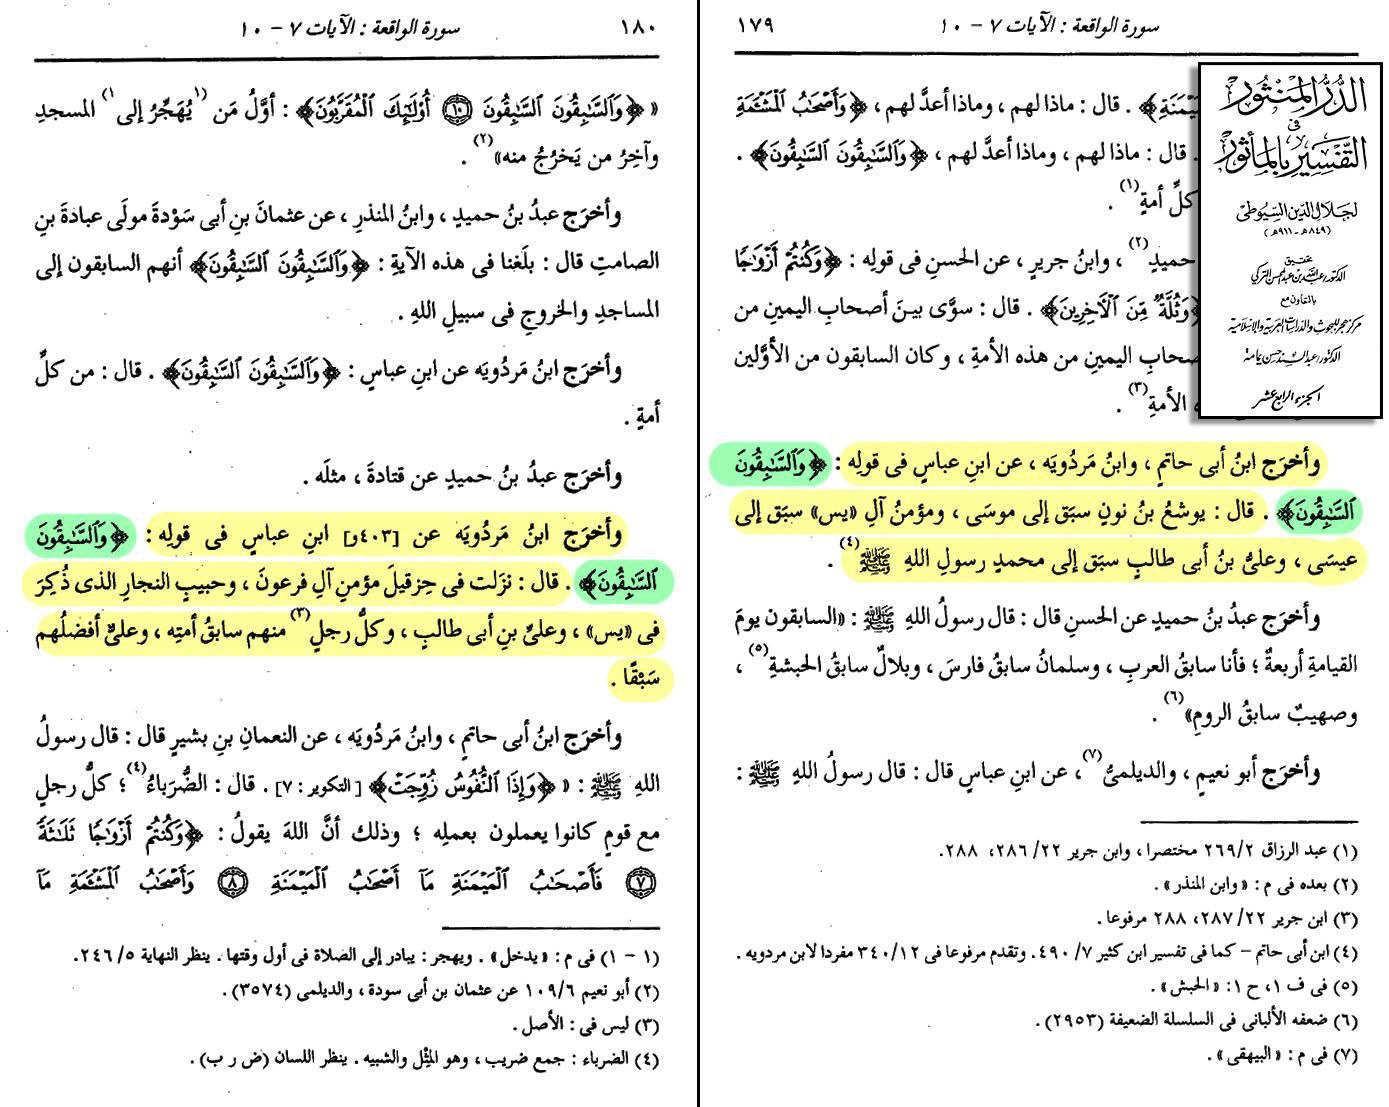 سورة الواقعة : الآيات ٧ - ١٠
١٧٩
الدُّرُّ المَنْثُور
فى
التفسير بالمأثور
لجلال الدين السيوطى
(٨٤٩هـ - ٩١١هـ)
تحقيق
الدكتور عبد الله بن عبد المحسن التركى
بالتعاون مع
مركز هجر للبحوث والدراسات العربية والإسلامية
الدكتور عبد السند حسن يمامة
الجزء الرابع عشر
﴾ . قال : ماذا لهم ، وماذا أعدَّ لهم ، ﴿وَأَصْحَٰبُ ٱلْمَشْـَٔمَةِ
. قال : ماذا لهم ، وماذا أعدَّ لهم ، ﴿وَٱلسَّٰبِقُونَ ٱلسَّٰبِقُونَ﴾ .
كلِّ أمةٍ(١) .
حميدٍ(٢) ، وابنُ جريرٍ ، عن الحسنِ فى قولِه : ﴿وَكُنتُمْ أَزْوَٰجًا
﴿وَثُلَّةٌ مِّنَ ٱلْأَخِرِينَ﴾ . قال : سوَّى بينَ أصحابِ اليمينِ من
أصحابِ اليمينِ من هذه الأمةِ ، وكان السابقون من الأوَّلين
الأمةِ(٣) .
وأخرَج ابنُ أبى حاتمٍ ، وابنُ مَردُويَه ، عن ابنِ عباسٍ فى قولِه : ﴿وَٱلسَّٰبِقُونَ
ٱلسَّٰبِقُونَ﴾ . قال : يوشعُ بنُ نونٍ سبَق إلى موسَى ، ومؤمنُ آلِ «يس» سبَق إلى
عيسَى ، وعلىُّ بنُ أبى طالبٍ سبَق إلى محمدٍ رسولِ اللهِ ﷺ(٤) .
وأخرَج عبدُ بنُ حميدٍ عن الحسنِ قال : قال رسولُ اللهِ ﷺ : «السابقون يومَ
القيامةِ أربعةٌ ؛ فأنا سابقُ العربِ ، وسلمانُ سابقُ فارسَ ، وبلالٌ سابقُ الحبشةِ(٥) ،
وصهيبٌ سابقُ الرومِ»(٦) .
وأخرَج أبو نعيمٍ ، والديلمىُّ(٧)، عن ابنِ عباسٍ قال : قال رسولُ اللهِ ﷺ :
(١) عبد الرزاق ٢٦٩/٢ مختصرا ، وابن جرير ٢٨٦/٢٢، ٢٨٨.
(٢) بعده فى م : «وابن المنذر» .
(٣) ابن جرير ٢٨٧/٢٢، ٢٨٨ مرفوعا .
(٤) ابن أبى حاتم - كما فى تفسير ابن كثير ٤٩٠/٧. وتقدم مرفوعا فى ٣٤٠/١٢ مفردا لابن مردويه .
(٥) فى ف ١، ح ١: «الحبش» .
(٦) ضعفه الألبانى فى السلسلة الضعيفة (٢٩٥٣) .
(٧) فى م : «البيهقى» .
١٨٠
سورة الواقعة : الآيات ٧ - ١٠
« ﴿وَٱلسَّٰبِقُونَ ٱلسَّٰبِقُونَ ١٠ أُوْلَٰٓئِكَ ٱلْمُقَرَّبُونَ﴾ : أوَّلُ مَن (١يُهَجِّرُ إلى١) المسجدِ
وآخِرُ من يَخرُجُ منه»(٢) .
وأخرَج عبدُ بنُ حميدٍ ، وابنُ المنذرِ ، عن عثمانَ بنِ أبى سَوْدةَ مولَى عبادةَ بنِ
الصامتِ قال : بلَغنا فى هذه الآيةِ : ﴿وَٱلسَّٰبِقُونَ ٱلسَّٰبِقُونَ﴾ أنهم السابقون إلى
المساجدِ والخروجِ فى سبيلِ اللهِ .
وأخرَج ابنُ مَردُويَه عن ابنِ عباسٍ : ﴿وَٱلسَّٰبِقُونَ ٱلسَّٰبِقُونَ﴾ . قال : من كلِّ
أمةٍ .
وأخرَج عبدُ بنُ حميدٍ عن قتادةَ ، مثلَه .
وأخرَج ابنُ مَردُويَه عن [٤٠٣و] ابنِ عباسٍ فى قولِه : ﴿وَٱلسَّٰبِقُونَ
ٱلسَّٰبِقُونَ﴾ . قال : نزَلت فى حِزقيلَ مؤمنِ آلِ فرعونَ ، وحبيبٍ النجارِ الذى ذُكِرَ
فى «يس» ، وعلىِّ بنِ أبى طالبٍ ، وكلُّ رجلٍ(٣) منهم سابقُ أمتِه ، وعلىٌّ أفضلُهم
سَبْقًا .
وأخرَج ابنُ أبى حاتمٍ ، وابنُ مَردُويَه ، عن النعمانِ بنِ بشيرٍ قال : قال رسولُ
اللهِ ﷺ : « ﴿وَإِذَا ٱلنُّفُوسُ زُوِّجَتْ﴾ [التكوير : ٧] . قال : الضُّرَباءُ(٤)؛ كلُّ رجلٍ
مع قومٍ كانوا يعملون بعملِه ؛ وذلك أنَّ اللهَ يقولُ : ﴿وَكُنتُمْ أَزْوَٰجًا ثَلَٰثَةً
٧ فَأَصْحَٰبُ ٱلْمَيْمَنَةِ مَآ أَصْحَٰبُ ٱلْمَيْمَنَةِ ٨ وَأَصْحَٰبُ ٱلْمَشْـَٔمَةِ مَآ
(١ - ١) فى م : «يدخل» . ويهجر : يبادر إلى الصلاة فى أول وقتها . ينظر النهاية ٢٤٦/٥.
(٢) أبو نعيم ١٠٩/٦ عن عثمان بن أبى سودة ، والديلمى (٣٥٧٤) .
(٣) ليس فى : الأصل .
(٤) الضرباء : جمع ضريب ، وهو المِثْل والشبيه . ينظر اللسان (ض ر ب) .